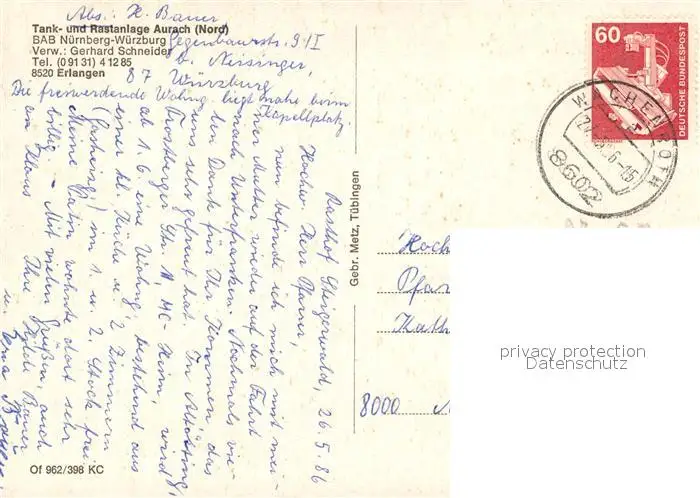 Abs.: H. Bauer
Tank- und Rastanlage Aurach (Nord)
BAB Nürnberg-Würzburg
Verw.: Gerhard Schneider
Tel. (0 91 31) 4 12 85
8520 Erlangen
Gegenbaurstr. 9 I
b. Neisinger,
87 Würzburg
Die freiwerdende Wohng. liegt nahe beim
Kapellplatz.
Rasthof Steigerwald, 26.5.86
Hochw. Herr Pfarrer,
nun befinde ich mich mit mei-
ner Mutter wieder auf der Fahrt
nach Unterfranken. Nochmals vie-
len Dank für Ihr Kommen, das
uns sehr gefreut hat. In Altötting,
Str. 11, wird
ab 1.6. eine Wohng., bestehend aus
einer kl. Küche u. 2 Zimmern
im 1. u. 2. Stock frei.
Meine wohnte dort sehr
billig. - Mit vielen Grüßen, auch
Ihre Hilde Bauer
u.
Of 962/398 KC
Gebr. Metz, Tübingen
60
DEUTSCHE BUNDESPOST
WACHENROTH
8602
Hoch
Pfar
Kath
8000
privacy protection
Datenschutz